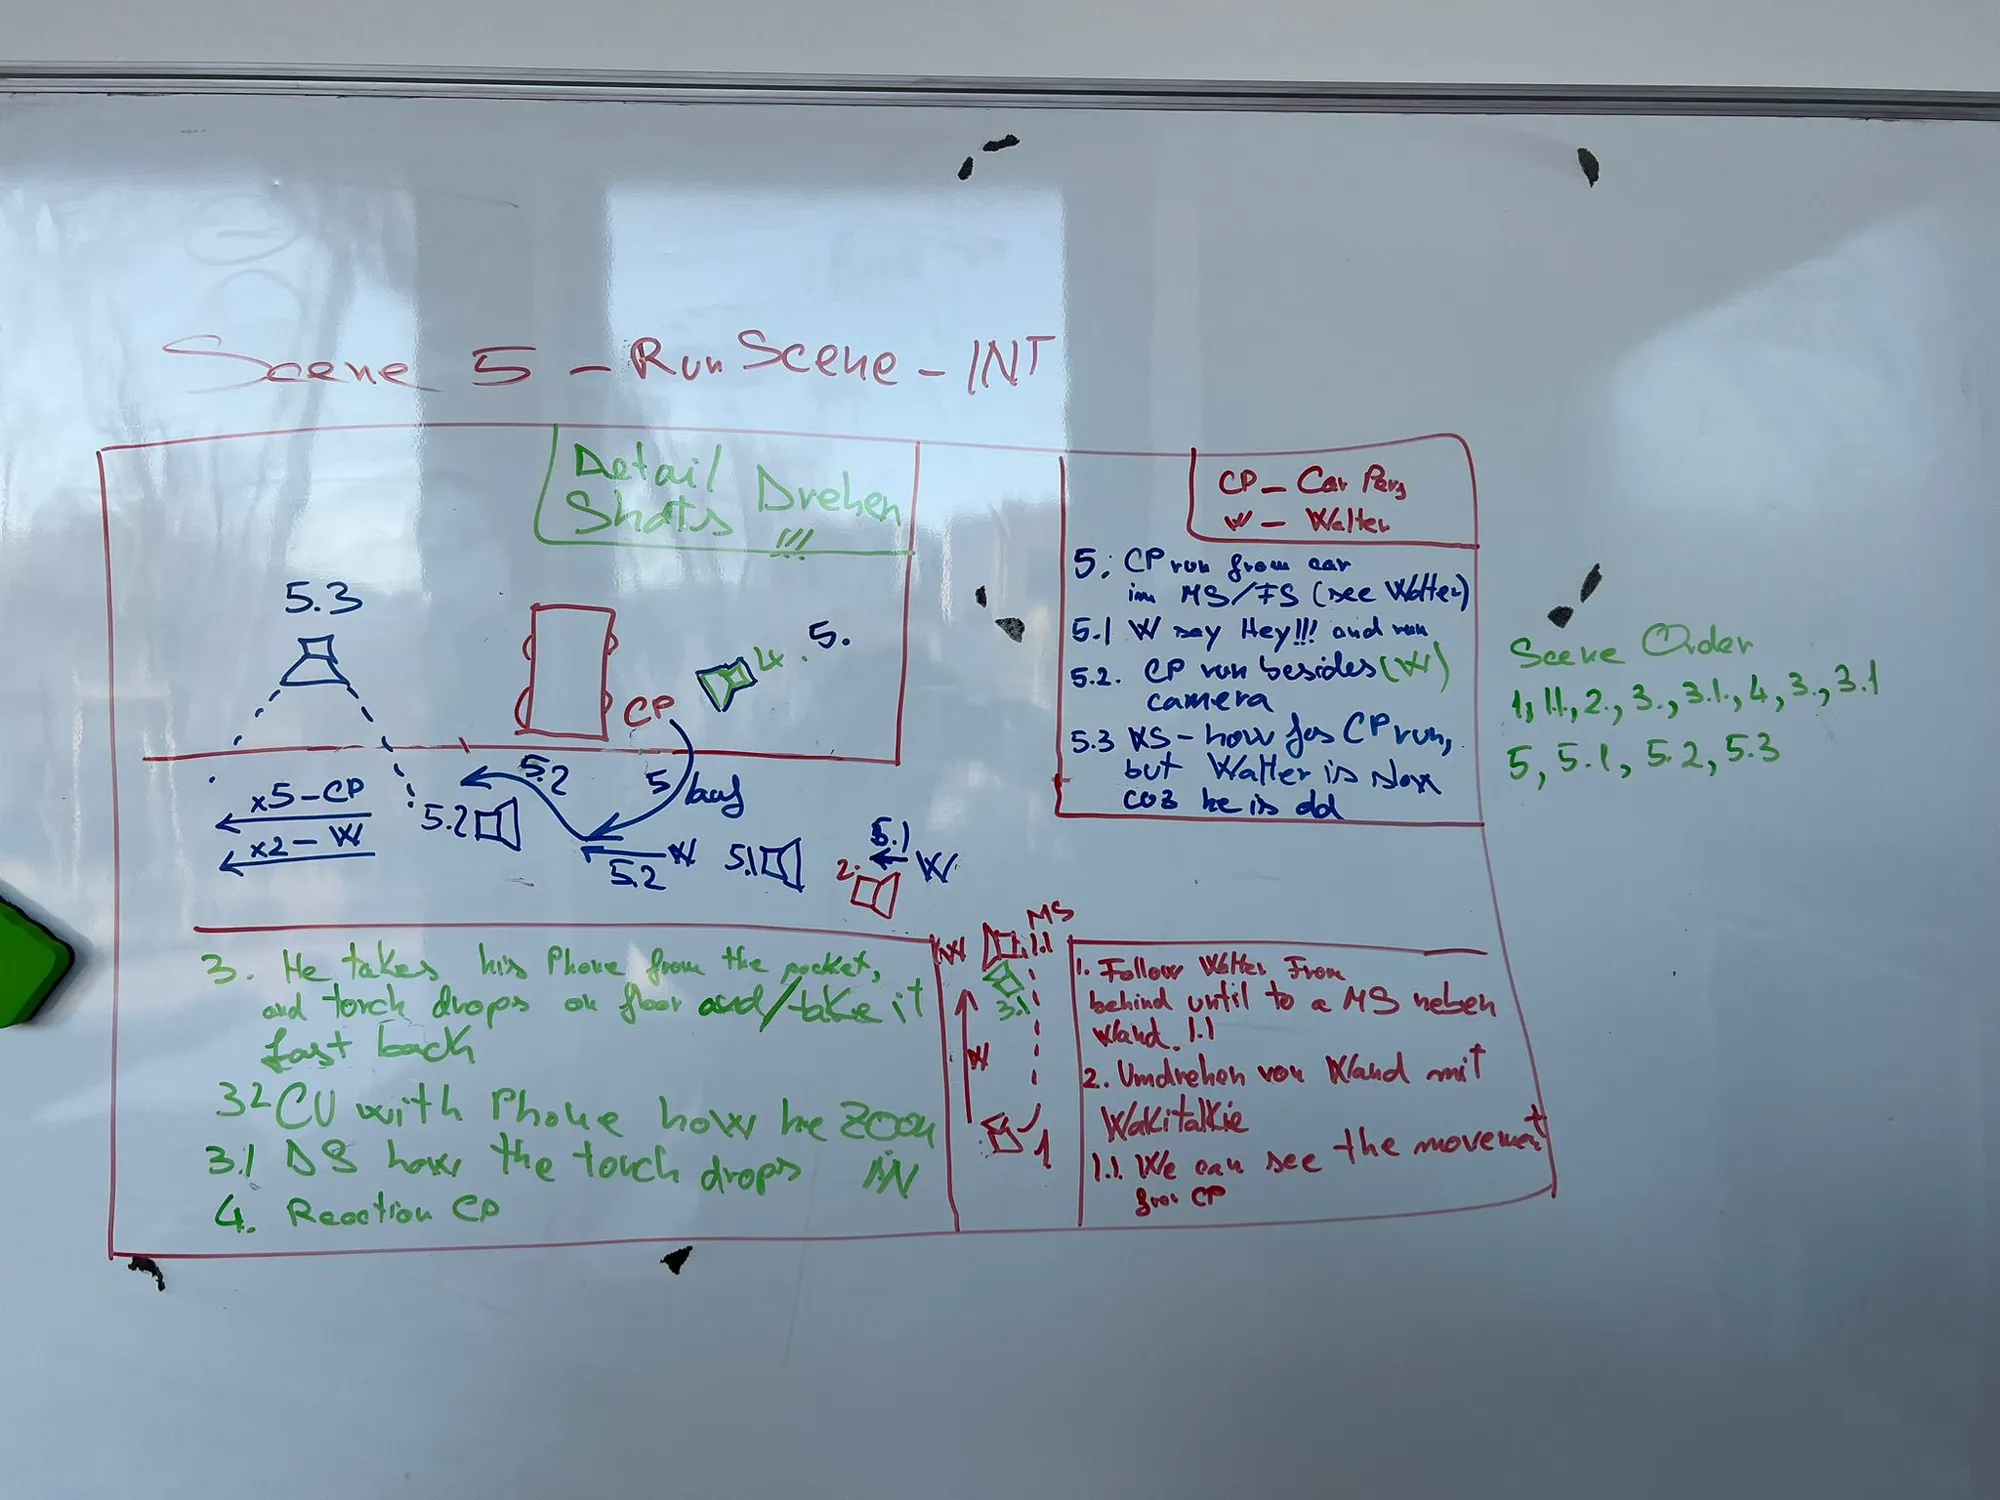 Scene 5 - Run Scene - INT
Detail
Shots Drehen
!!!
CP - Car Pers
W - Walter
5.3
4. 5.
CP
5.2
5
x5 - CP
x2 - W
5.2
5.2
W
5.1
5.1
W
2.
5. CP run from car
in MS/FS (see Walter)
5.1 W say Hey!!! and run
5.2. CP run besides (W)
camera
5.3 WS - how fas CP run,
but Walter is slow
coz he is old
Scene Order
1, 1.1, 2., 3., 3.1., 4, 3., 3.1
5, 5.1, 5.2, 5.3
3. He takes his Phone from the pocket,
and torch drops on floor and/take it
fast back
3.2 CU with Phone how he zoom
IN
3.1 DS how the torch drops
4. Reaction CP
MS
W
1.1
3.1
W
1
1. Follow Walter From
behind until to a MS neben
Wand. 1.1
2. Umdrehen von Wand mit
Wakitalkie
1.1. We can see the movement
from CP